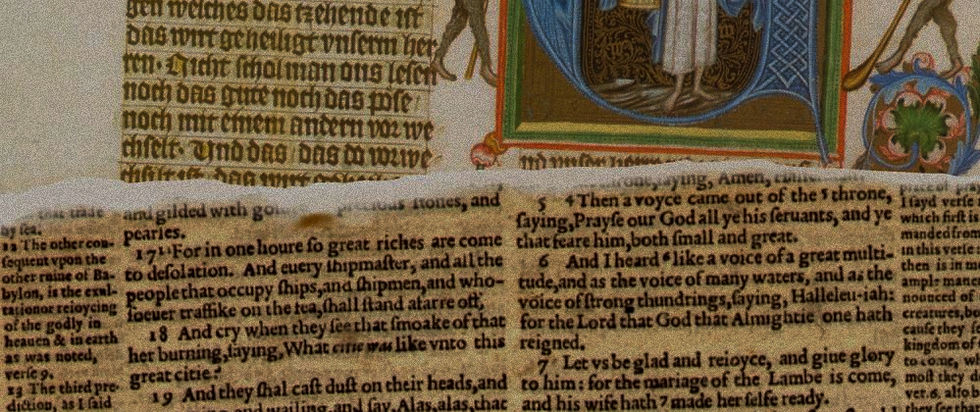 gen welches das tzehende ist
das wirt geheiligt vnserm her
ren. Nicht schol man ons lesen
noch das gute noch das pöse
noch mit einem andern vor we
chselt. Vnd das / das do vorwe
chselt ist das wirt
and gilded with precious stones, and
pearles.
17 11 For in one houre so great riches are come
to desolation. And euery shipmaster, and all the
people that occupy ships, and shipmen, and who-
soeuer traffike on the sea, shall stand afarre off,
18 And cry when they see that smoake of that
her burning, saying, What citie was like vnto this
great citie?
19 And they shal cast dust on their heads, and
and wailing, and say, Alas, alas, that
by sea.
12 The other con-
sequent vpon the
other ruine of Ba-
bylon, is the exul-
tation or reioycing
of the godly in
heauen & in earth
as was noted,
verse 9.
13 The third pre-
diction, as I said
throne, saying, Amen,
5 4 Then a voyce came out of the 5 throne,
saying, Prayse our God all ye his seruants, and ye
that feare him, both small and great.
6 And I heard 6 like a voice of a great multi-
tude, and as the voice of many waters, and as the
voice of strong thundrings, saying, Halleleu-iah:
for the Lord that God that Almightie one hath
reigned.
7 Let vs be glad and reioyce, and giue glory
to him: for the mariage of the Lambe is come,
and his wife hath 7 made her selfe ready.
I sayd verse
which first
manded from
in this verse
then is in
ample man
nounced of
creatures, be
cause they
kingdom of
to come, wh
most they
ver. 6, also